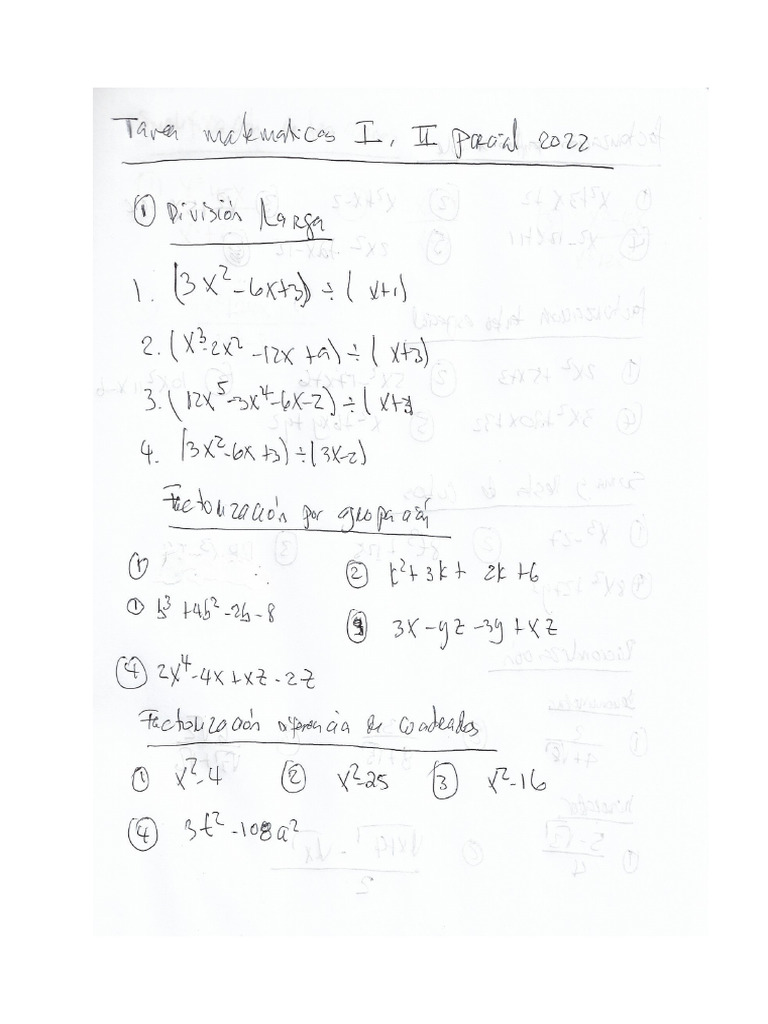 Tarea matematicas I, II parcial 2022
① División Larga
1. (3x² - 6x + 3) ÷ (x+1)
2. (x³ - 2x² - 12x + a) ÷ (x+3)
3. (12x⁵ - 3x⁴ - 6x - 2) ÷ (x+
4. (3x² - 6x + 3) ÷ (3x - 2)
Factorización por
①
② k² + 3k + 2k + 6
① b³ + 4b² - 2b - 8
3x - yz - 3y + xz
④ 2x⁴ - 4x + xz - 2z
Factorización Diferencia de Cuadrados
① x² - 4 ② x² - 25 ③ x² - 16
④ 3t² - 108a²